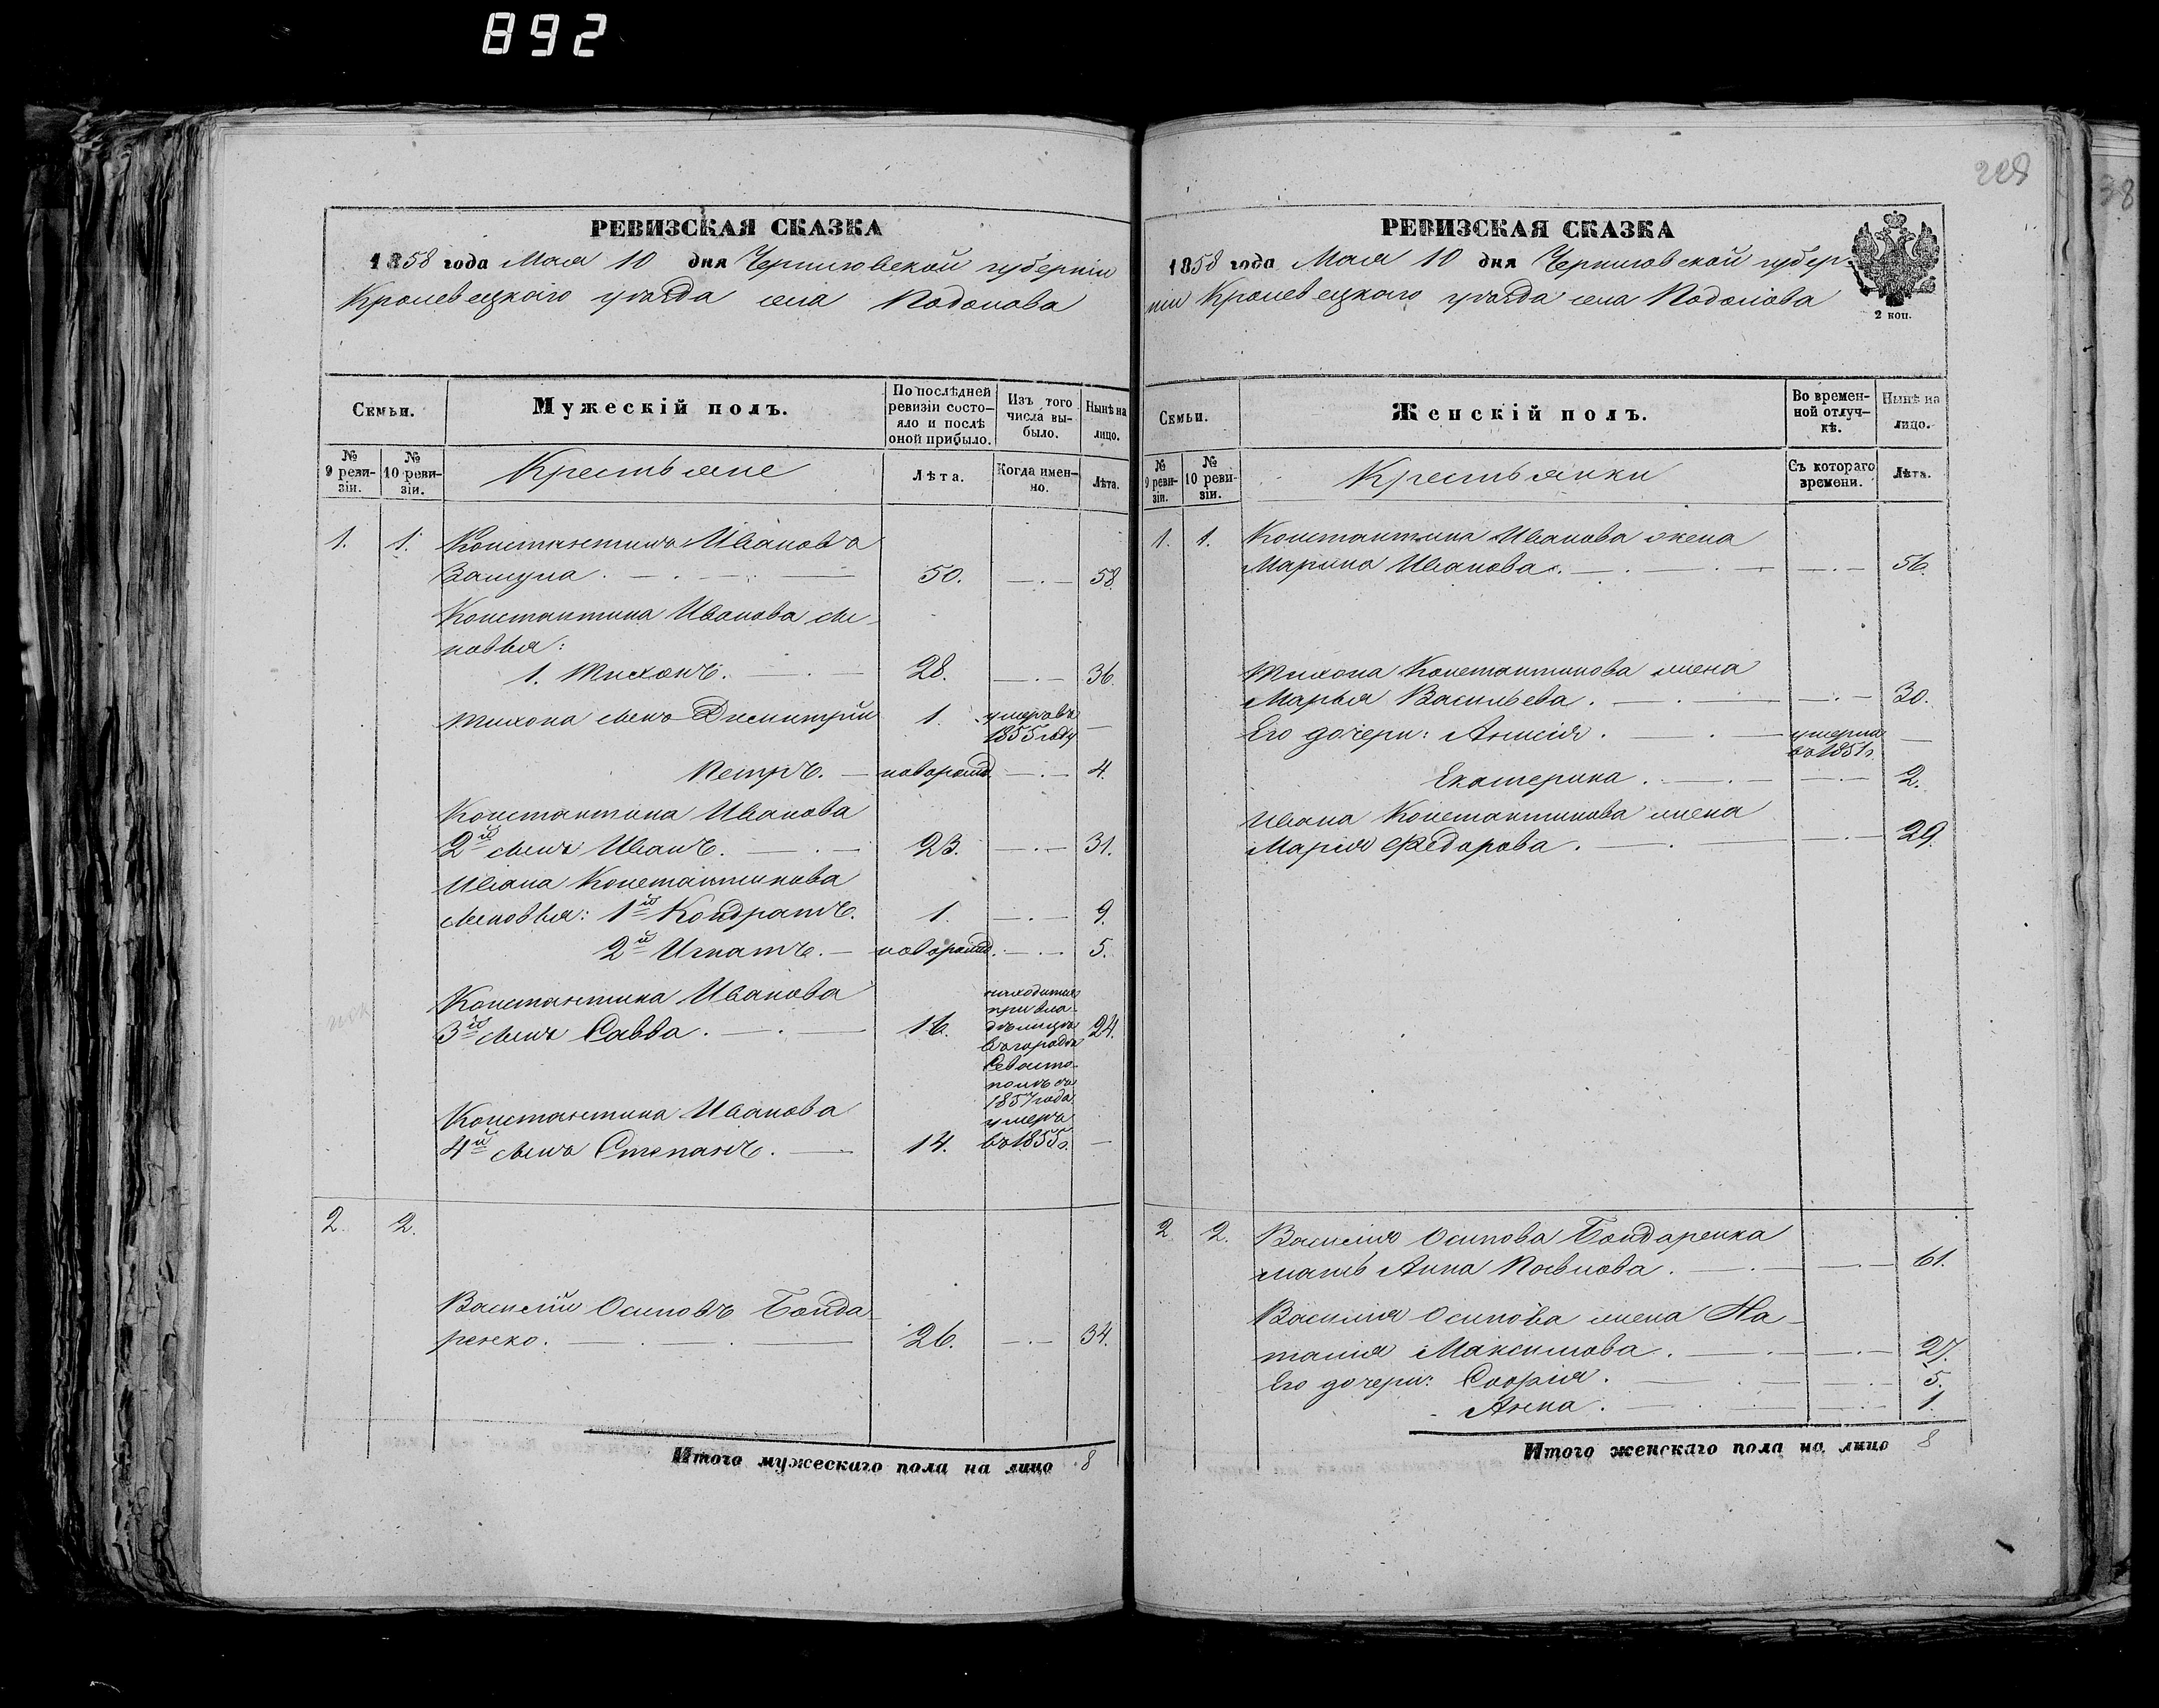 892
228
38
РЕВИЗСКАЯ СКАЗКА
1858 года Мая 10 дня Черниговской губерніи
Кролевецкаго уѣзда села Подолова
Семьи.
Мужескій полъ.
По послѣдней ревизіи состо-
яло и послѣ оной прибыло.
Изъ того числа вы-
было.
Нынѣ на лицо.
№ 9 реви-
зіи.
№ 10 реви-
зіи.
Крестьяне
Лѣта.
Когда имен-
но.
Лѣта.
1. 1. Константинъ Ивановъ
Зашупа . 50. 58.
Константина Иванова сы-
новья:
1. Тихонъ. 28. 36.
Тихона сынъ Димитрій 1. умеръ въ
1855 году
Петръ. новорожд. 4.
Константина Иванова
2й сынъ Иванъ. 23. 31.
Ивана Константинова
сыновья: 1й Кондратъ. 1. 9.
2й Игнатъ. новорожд. 5.
Константина Иванова
3й сынъ Савва . 16. 24.
находится
при вла-
дѣлицѣ
въ городѣ
Севасто-
полѣ съ
1857 года
Константина Иванова
4й сынъ Степанъ. 14. умеръ
въ 1855г.
2. 2.
Василій Осиповъ Бонда-
ренко. 26. 34.
Итого мужескаго пола на лицо 8
РЕВИЗСКАЯ СКАЗКА
1858 года Мая 10 дня Черниговской губер-
ніи Кролевецкаго уѣзда села Подолова
2 коп.
Семьи.
Женскій полъ.
Во времен-
ной отлуч-
кѣ.
Нынѣ на
лицо.
№ 9 реви-
зіи.
№ 10 реви-
зіи.
Крестьянки
Съ котораго времени.
Лѣта.
1. 1. Константина Иванова жена
Марина Иванова. 56.
Тихона Константинова жена
Марья Васильева. 30.
Его дочери: Анисія . умерла
въ 1851г.
Екатерина . 2.
Ивана Константинова жена
Марія Федорова . 29.
2. 2. Василія Осипова Бондаренка
мать Анна Павлова . 61.
Василія Осипова жена На-
талія Максимова . 27.
Его дочери: Софія . 5.
Анна . 1.
Итого женскаго пола на лицо 8